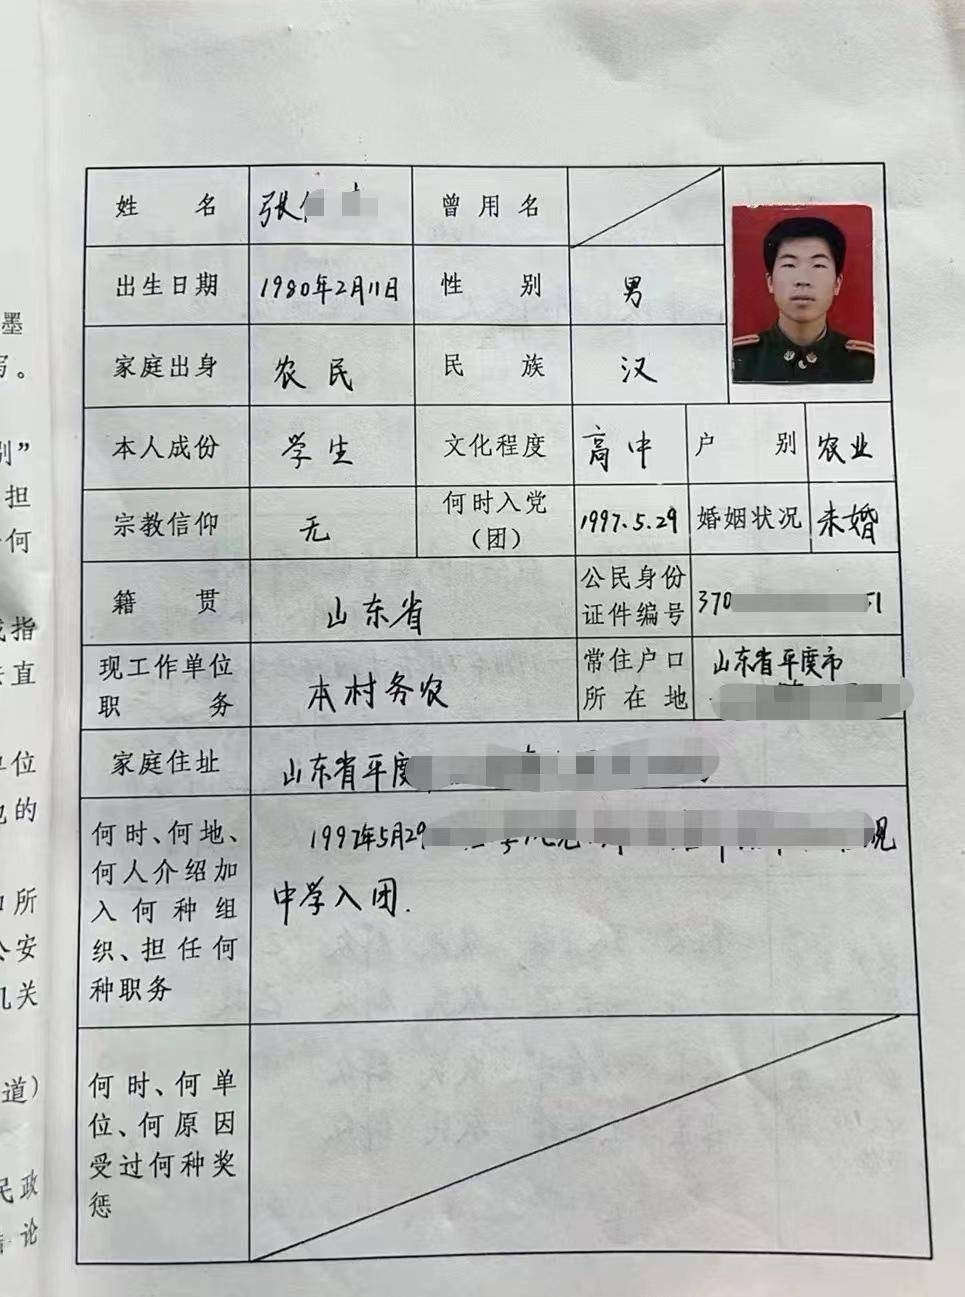 墨
写。
别”
担
何
或指
去直
单位
地的
和所
公安
机关
道)
民政
结论
姓 名 张 曾用名
出生日期 1980年2月11日 性 别 男
家庭出身 农民 民 族 汉
本人成份 学生 文化程度 高中 户 别 农业
宗教信仰 无 何时入党
(团) 1997.5.29 婚姻状况 未婚
籍 贯 山东省 公民身份
证件编号 370 51
现工作单位
职 务 本村务农 常住户口
所在地 山东省平度市
家庭住址 山东省平度
何时、何地、
何人介绍加
入何种组
织、担任何
种职务
1997年5月29
中学入团.
何时、何单
位、何原因
受过何种奖
惩